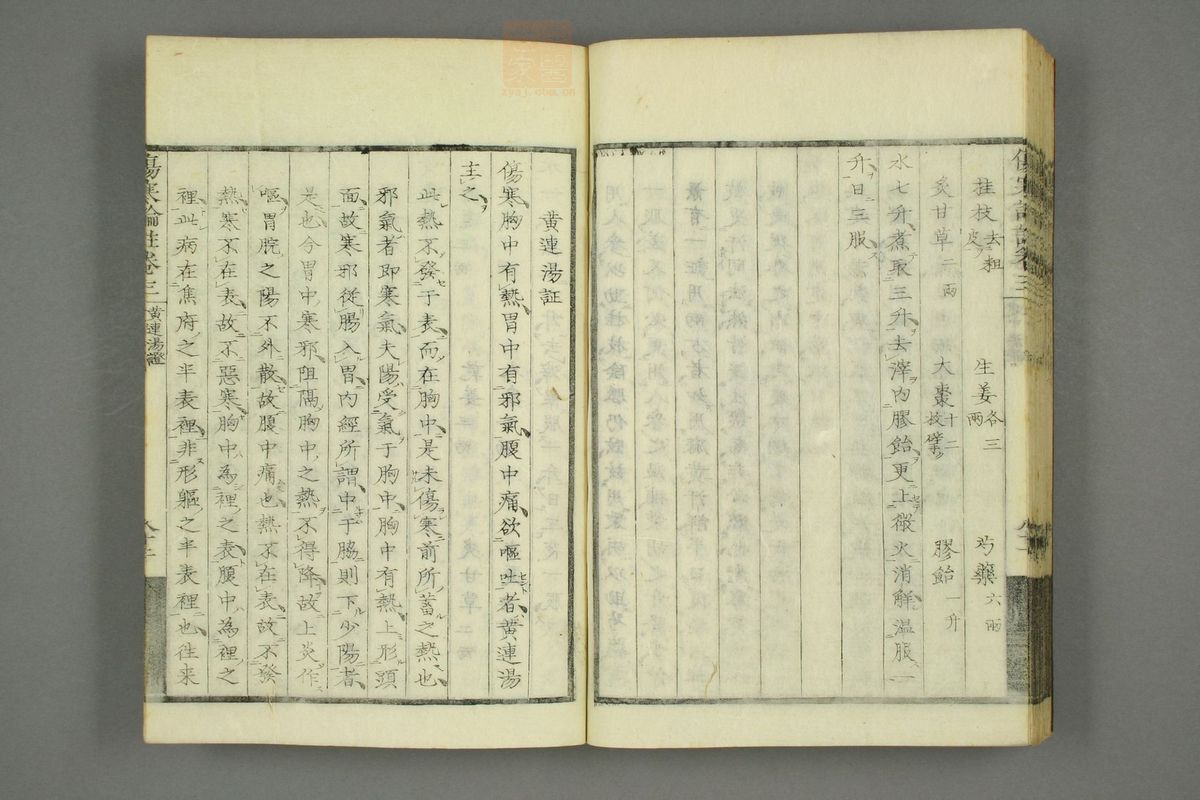 桂枝去粗皮 生姜各三兩 芍藥六兩
炙甘草二兩 大棗十二枚擘 膠飴一升
水七升煮取三升去滓内膠飴更上微火消解温服一
升日三服
黄連湯証
傷寒胸中有熱胃中有邪氣腹中痛欲嘔吐者黄連湯
主之
此熱不發于表而在胸中是未傷寒前所蓄之熱也
邪氣者即寒氣夫陽受氣于胸中胸中有熱上形頭
面故寒邪從腸入胃内經所謂中于脇則下少陽者
是也今胃中寒邪阻隔胸中之熱不得降故上炎作
嘔胃脘之陽不外散故腹中痛也熱不在表故不發
熱寒不在表故不惡寒胸中為裡之表腹中為裡之
裡此病在焦府之半表裡非形軀之半表裡也往来
傷寒論註卷三 黄連湯證
zysj.com.cn